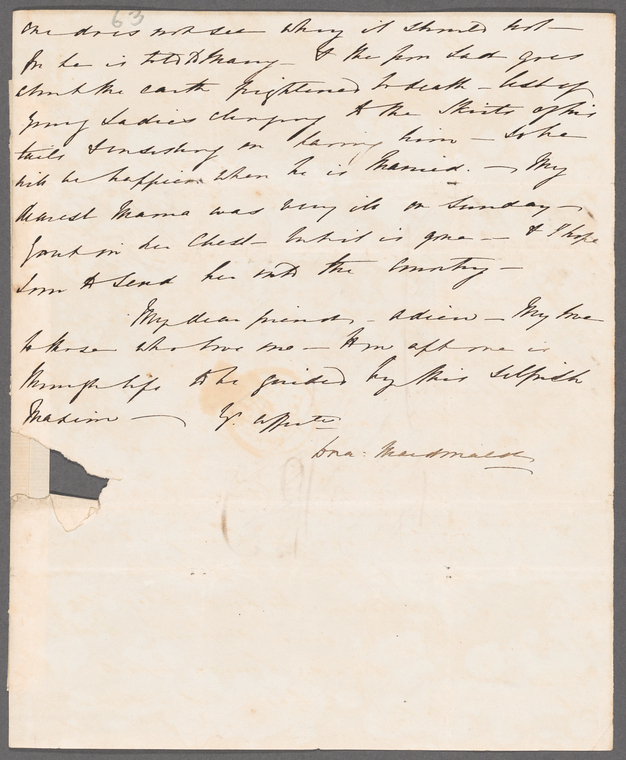 63
one does not see why it should not —
for he is told to marry — & the poor Lad goes
about the earth frightened to death — lest of
young Ladies clinging to the Skirts of his
tails & insisting on having him — So he
will be happier when he is Married. — My
dearest Mama was very ill on Sunday —
Gout in her Chest — but it is gone — & I hope
soon to send her into the Country —
My dear friend, — adieu — My love
to those who love me — How apt one is
through life to be guided by this selfish
Maxim — Yr. affecte
Loa: Macdonald